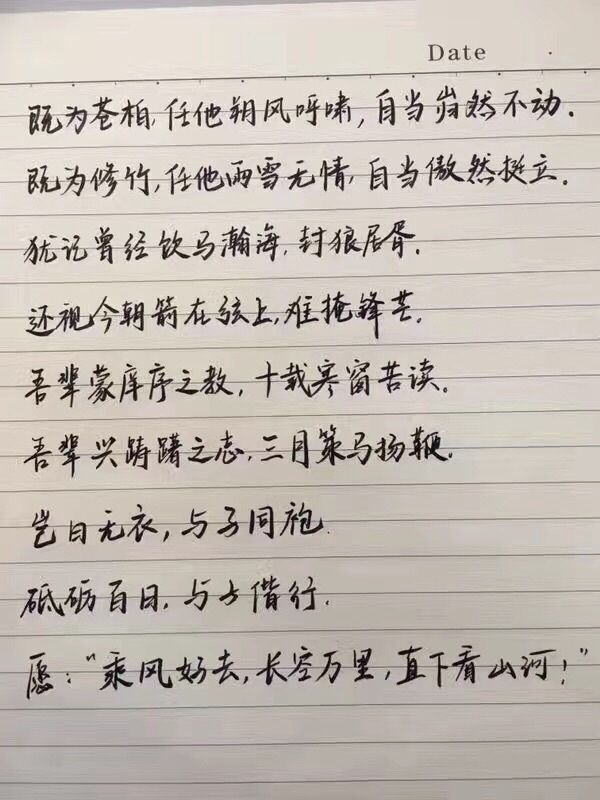 Date
既为苍柏,任他朔风呼啸,自当岿然不动.
既为修竹,任他雨雪无情,自当傲然挺立.
犹记曾经饮马瀚海,封狼居胥.
还视今朝箭在弦上,难掩锋芒.
吾辈蒙庠序之教,十载寒窗苦读.
吾辈兴踌躇之志,三月策马扬鞭.
岂曰无衣,与子同袍.
砥砺百日,与士偕行.
愿:“乘风好去,长空万里,直下看山河!”